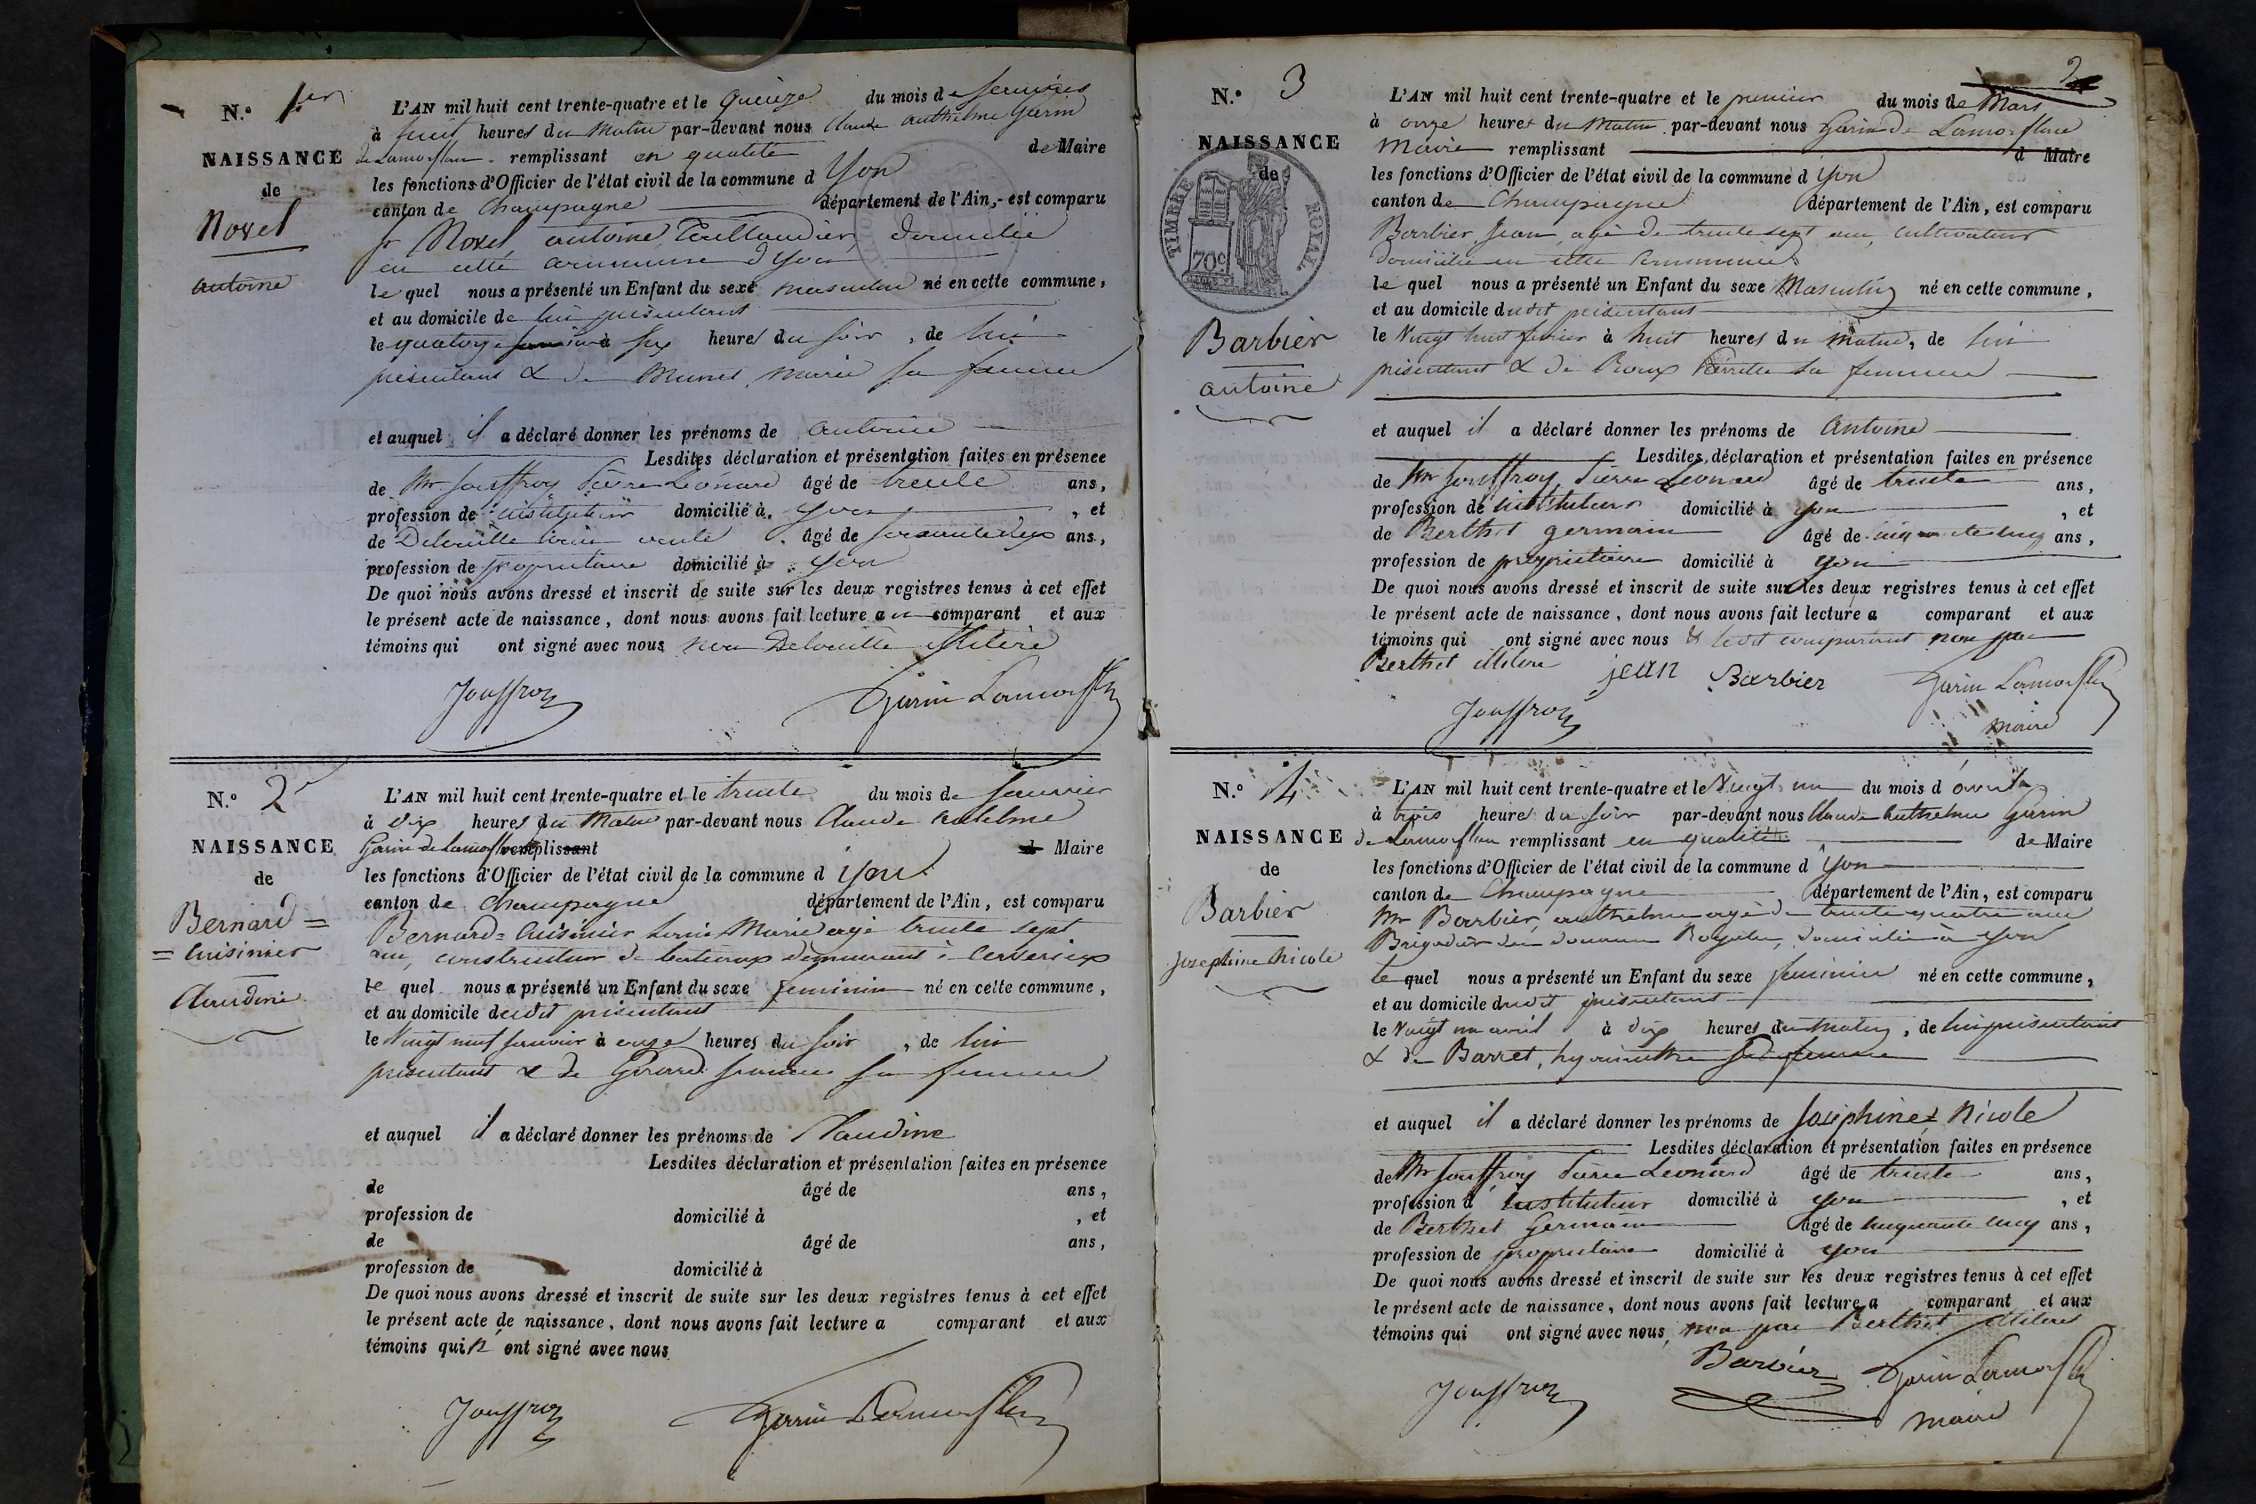 N.º 1er
NAISSANCE
de
Novel
antoine
L'AN mil huit cent trente-quatre et le Quinze du mois de
à huit heures du Matin par-devant nous Claude anthelme Garin
remplissant en qualité de Maire
les fonctions d'Officier de l'état civil de la commune d Yon
canton de Champagne département de l'Ain, est comparu
Sr Novel antoine, domicilié
en cette commune d'yon
le quel nous a présenté un Enfant du sexe masculin né en cette commune,
et au domicile de lui présentant
le quatorze à six heures du soir, de lui
présentant & de Munet Marie sa femme
et auquel il a déclaré donner les prénoms de antoine
Lesdites déclaration et présentation faites en présence
de Mr Jouffroy Pierre Leonard âgé de trente ans,
profession de instituteur domicilié à yon, et
de âgé de ans,
profession de propriétaire domicilié à yon
De quoi nous avons dressé et inscrit de suite sur les deux registres tenus à cet effet
le présent acte de naissance, dont nous avons fait lecture au comparant et aux
témoins qui ont signé avec nous non illitéré
Jouffroy
N.º 2
NAISSANCE
de
Bernard =
= Cuisinier
Claudine
L'AN mil huit cent trente-quatre et le trente du mois de Janvier
à dix heures du Matin par-devant nous Claude anthelme
Garin de remplissant Maire
les fonctions d'Officier de l'état civil de la commune d Yon
canton de Champagne département de l'Ain, est comparu
Bernard = Cuisinier Louis Marie agé trente sept
ans, constructeur de bateaux demeurant à
le quel nous a présenté un Enfant du sexe feminin né en cette commune,
et au domicile dudit présentant
le Vingt neuf janvier à onze heures du soir, de lui
présentant & de Girard sa femme
et auquel il a déclaré donner les prénoms de Claudine
Lesdites déclaration et présentation faites en présence
de âgé de ans,
profession de domicilié à , et
de âgé de ans,
profession de domicilié à
De quoi nous avons dressé et inscrit de suite sur les deux registres tenus à cet effet
le présent acte de naissance, dont nous avons fait lecture a comparant et aux
témoins qui n' ont signé avec nous
Jouffroy
2
N.º 3
NAISSANCE
de
TIMBRE ROYAL
70c
Barbier
antoine
L'AN mil huit cent trente-quatre et le premier du mois de Mars
à onze heures du Matin par-devant nous Garin de
Maire remplissant d Maire
les fonctions d'Officier de l'état civil de la commune d Yon
canton de Champagne département de l'Ain, est comparu
Barbier Jean, agé de trente sept ans, cultivateur
domicilié en cette commune
le quel nous a présenté un Enfant du sexe Masculin né en cette commune,
et au domicile dudit présentant
le Vingt huit fevrier à huit heures du matin, de lui
présentant & de Roux Pierrette sa femme
et auquel il a déclaré donner les prénoms de Antoine
Lesdites déclaration et présentation faites en présence
de Mr Jouffroy, Pierre Leonard âgé de trente ans,
profession de instituteur domicilié à yon, et
de Berthet germain âgé de cinquante cinq ans,
profession de propriétaire domicilié à yon
De quoi nous avons dressé et inscrit de suite sur les deux registres tenus à cet effet
le présent acte de naissance, dont nous avons fait lecture a comparant et aux
témoins qui ont signé avec nous & ledit comparant non pas
Berthet jean Barbier
Jouffroy maire
N.º 4
NAISSANCE
de
Barbier
Josephine Nicole
L'AN mil huit cent trente-quatre et le Vingt un du mois d'avril
à trois heures du soir par-devant nous Claude Anthelme Garin
remplissant en qualité de Maire
les fonctions d'Officier de l'état civil de la commune d Yon
canton de Champagne département de l'Ain, est comparu
Mr Barbier, anthelme agé de trente quatre ans
Brigadier des douanes Royales, domicilié à Yon
le quel nous a présenté un Enfant du sexe feminin né en cette commune,
et au domicile dudit présentant
le Vingt un avril à dix heures du matin, de lui présentant
& de Barret, sa femme
et auquel il a déclaré donner les prénoms de Joséphine Nicole
Lesdites déclaration et présentation faites en présence
de Mr Jouffroy Pierre Leonard âgé de trente ans,
profession d'instituteur domicilié à yon, et
de Berthet Germain âgé de cinquante cinq ans,
profession de propriétaire domicilié à yon
De quoi nous avons dressé et inscrit de suite sur les deux registres tenus à cet effet
le présent acte de naissance, dont nous avons fait lecture a comparant et aux
témoins qui ont signé avec nous, non pas Berthet
Jouffroy Barbier
maire